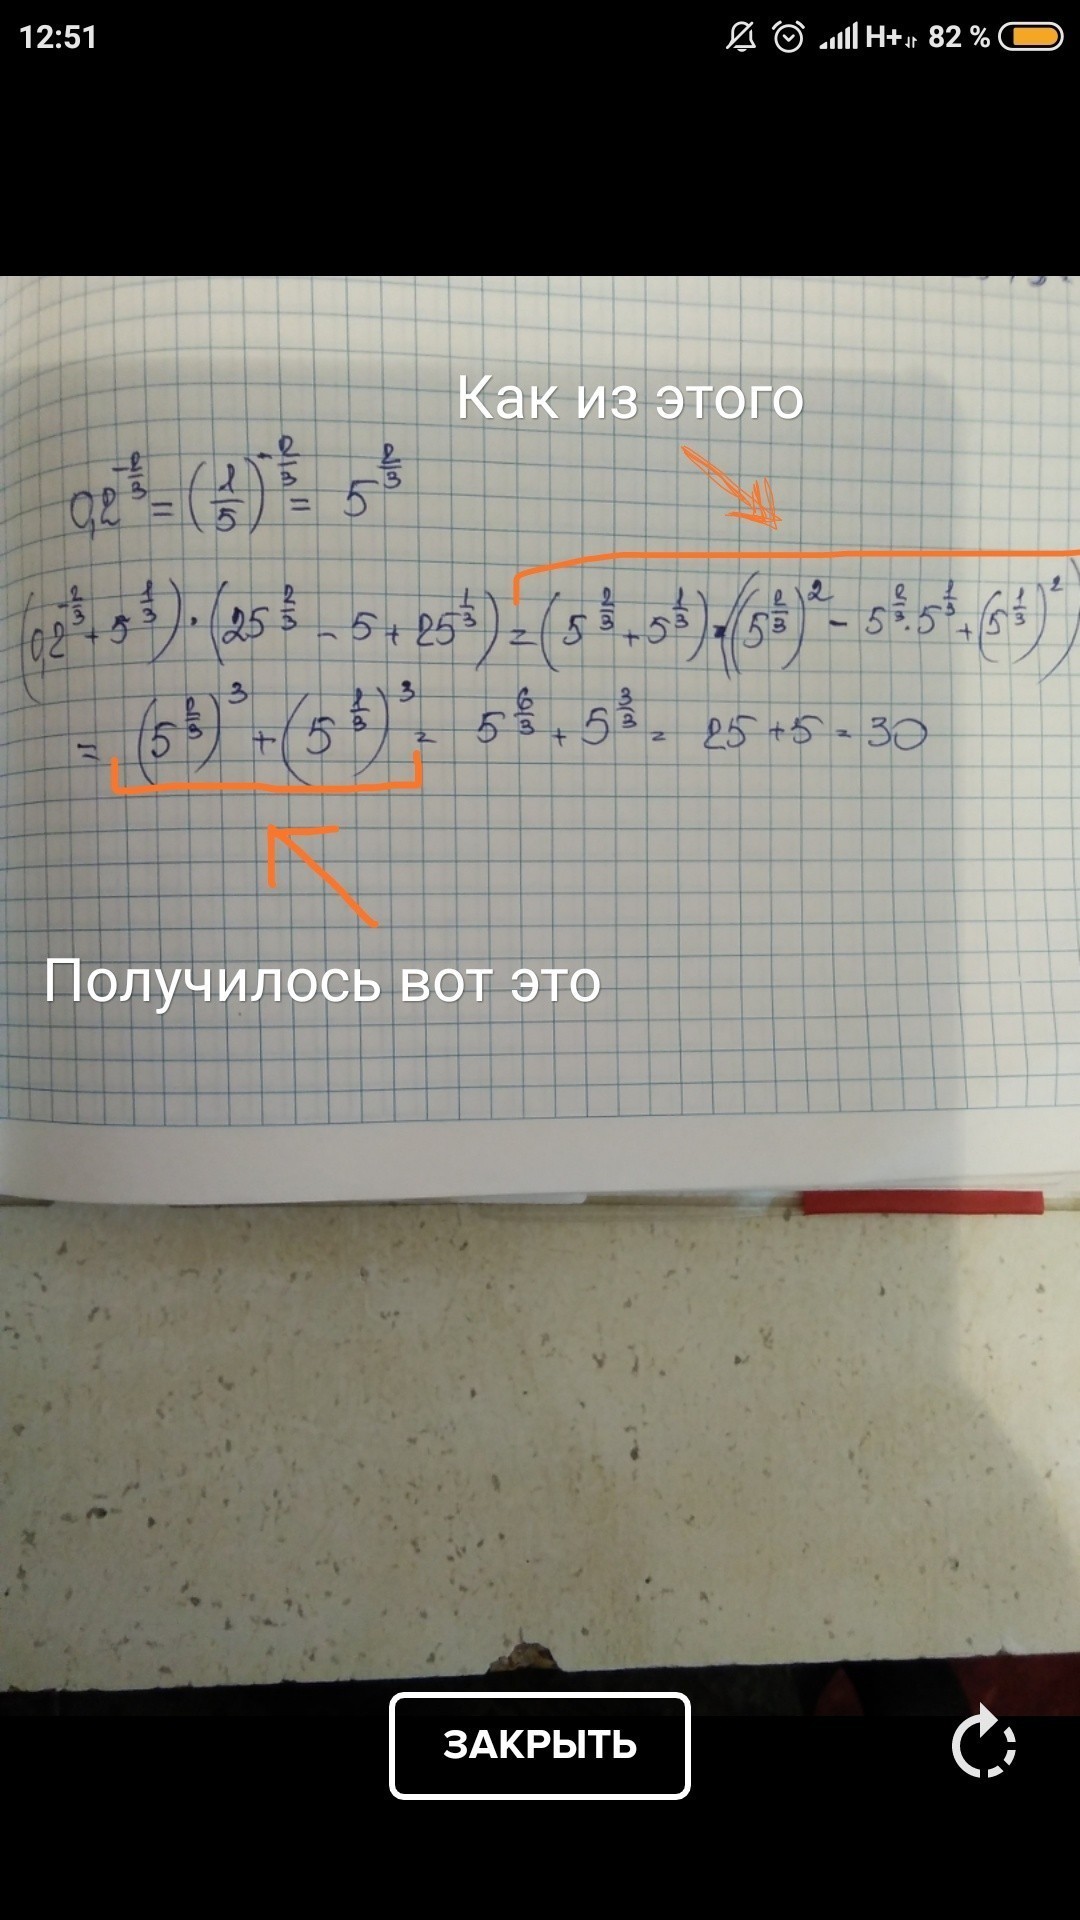 12:51 H+ 82 %
Как из этого
0,2^{-2/3} = (1/5)^{-2/3} = 5^{2/3}
(0,2^{-2/3} + 5^{1/3}) · (25^{2/3} - 5 + 25^{1/3}) = (5^{2/3} + 5^{1/3}) · ((5^{2/3})^2 - 5^{2/3} · 5^{1/3} + (5^{1/3})^2)
= (5^{2/3})^3 + (5^{1/3})^3 = 5^{6/3} + 5^{3/3} = 25 + 5 = 30
Получилось вот это
ЗАКРЫТЬ